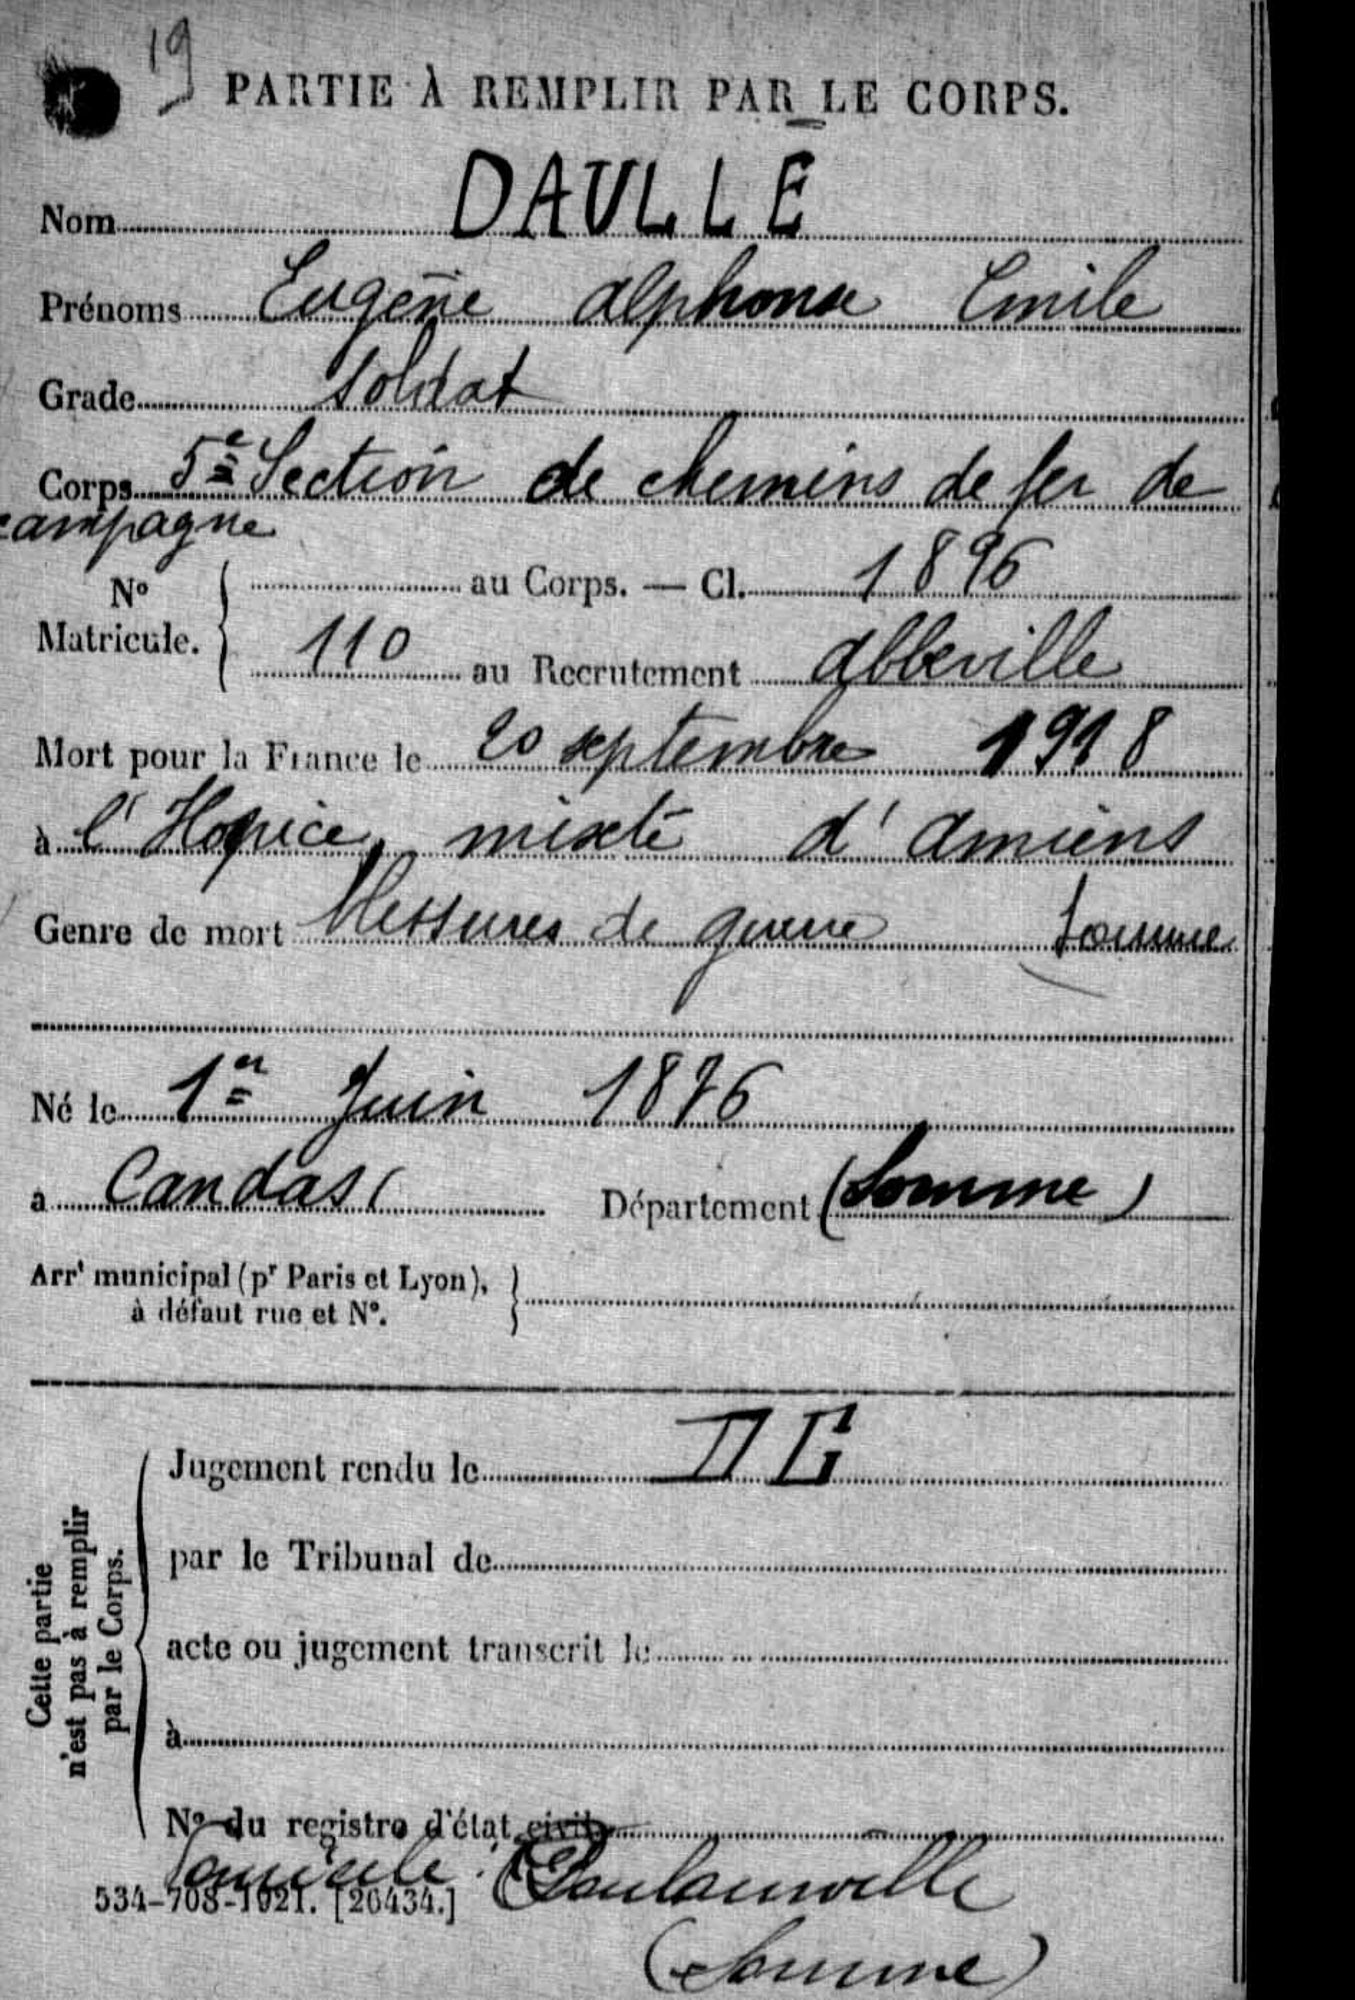 19
PARTIE À REMPLIR PAR LE CORPS.
Nom DAULLE
Prénoms Eugène Alphonse Emile
Grade soldat
Corps 5e Section de chemins de fer de
campagne
No Matricule. au Corps. — Cl. 1896
110 au Recrutement Abbeville
Mort pour la France le 20 septembre 1918
à l'Hospice mixte d'Amiens
Genre de mort Blessures de guerre Somme
Né le 1er Juin 1876
à Candas Département (Somme)
Arrt municipal (pr Paris et Lyon),
à défaut rue et No.
Cette partie
n'est pas à remplir
par le Corps.
Jugement rendu le DG
par le Tribunal de
acte ou jugement transcrit le
à
No du registre d'état civil
Domicile : Poulainville
534-708-1921. [26434.]
(Somme)